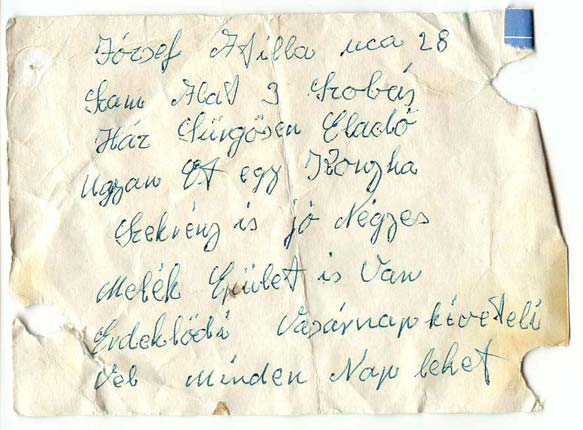 József Atilla uca 28
Szam Alat 3 szobás
Ház Sürgősen Eladó
Ugyan Et egy Konyha
Szekrény is jó Négyes
Melék Epület is Van
Erdeklödö Vasárnap kivételi
Vel minden Nap lehet